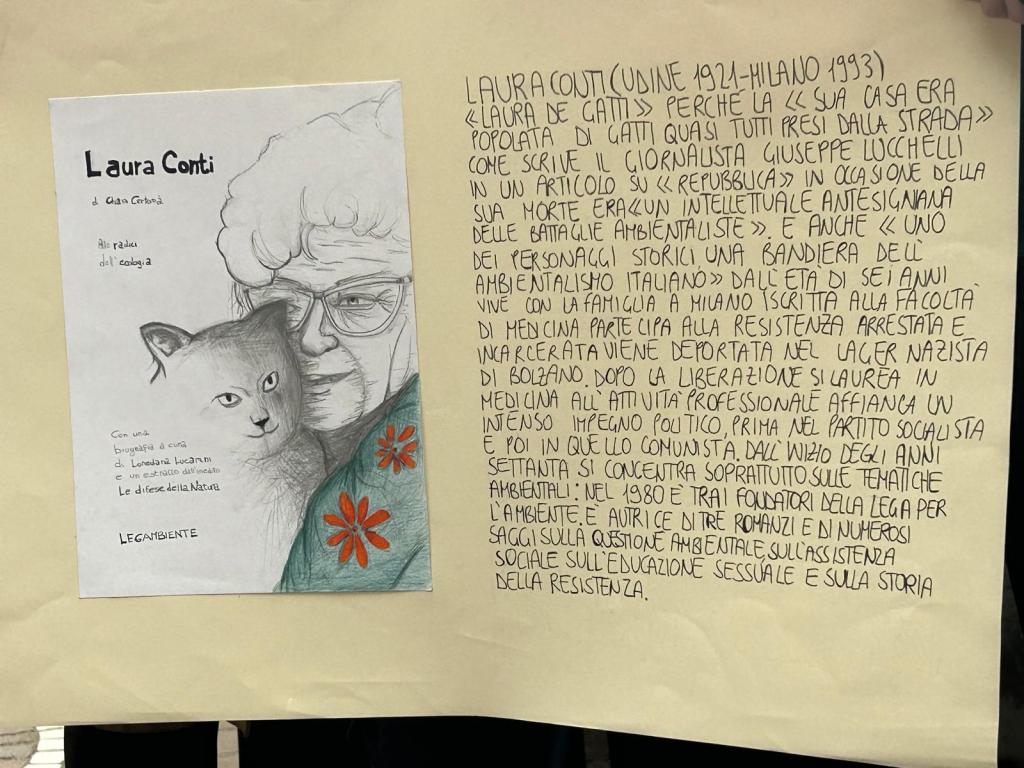 Laura Conti
di Chiara Certomà
Alle radici
dell'ecologia
Con una
biografia a cura
di Loredana Lucarini
e un estratto dall'inedito
Le difese della Natura
LEGAMBIENTE
LAURA CONTI (UDINE 1921-MILANO 1993)
«LAURA DE GATTI» PERCHÉ LA «SUA CASA ERA
POPOLATA DI GATTI QUASI TUTTI PRESI DALLA STRADA»
COME SCRIVE IL GIORNALISTA GIUSEPPE LUCCHELLI
IN UN ARTICOLO SU «REPUBBLICA» IN OCCASIONE DELLA
SUA MORTE ERA «UN INTELLETTUALE ANTESIGNANA
DELLE BATTAGLIE AMBIENTALISTE». E ANCHE «UNO
DEI PERSONAGGI STORICI, UNA BANDIERA DELL'
AMBIENTALISMO ITALIANO» DALL'ETÀ DI SEI ANNI
VIVE CON LA FAMIGLIA A MILANO ISCRITTA ALLA FACOLTÀ
DI MEDICINA PARTECIPA ALLA RESISTENZA ARRESTATA E
INCARCERATA VIENE DEPORTATA NEL LAGER NAZISTA
DI BOLZANO. DOPO LA LIBERAZIONE SI LAUREA IN
MEDICINA ALL'ATTIVITÀ PROFESSIONALE AFFIANCA UN
INTENSO IMPEGNO POLITICO, PRIMA NEL PARTITO SOCIALISTA
E POI IN QUELLO COMUNISTA. DALL'INIZIO DEGLI ANNI
SETTANTA SI CONCENTRA SOPRATTUTTO SULLE TEMATICHE
AMBIENTALI: NEL 1980 È TRA I FONDATORI DELLA LEGA PER
L'AMBIENTE. È AUTRICE DI TRE ROMANZI E DI NUMEROSI
SAGGI SULLA QUESTIONE AMBIENTALE, SULL'ASSISTENZA
SOCIALE SULL'EDUCAZIONE SESSUALE E SULLA STORIA
DELLA RESISTENZA.